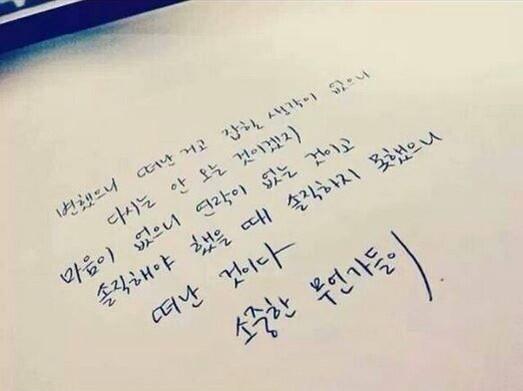 변했으니 떠난 거고 잡힐 생각이 없으니
다시는 안 오는 것이겠지
마음이 없으니 연락이 없는 것이고
솔직해야 했을 때 솔직하지 못했으니
떠난 것이다
소중한 무언가들이